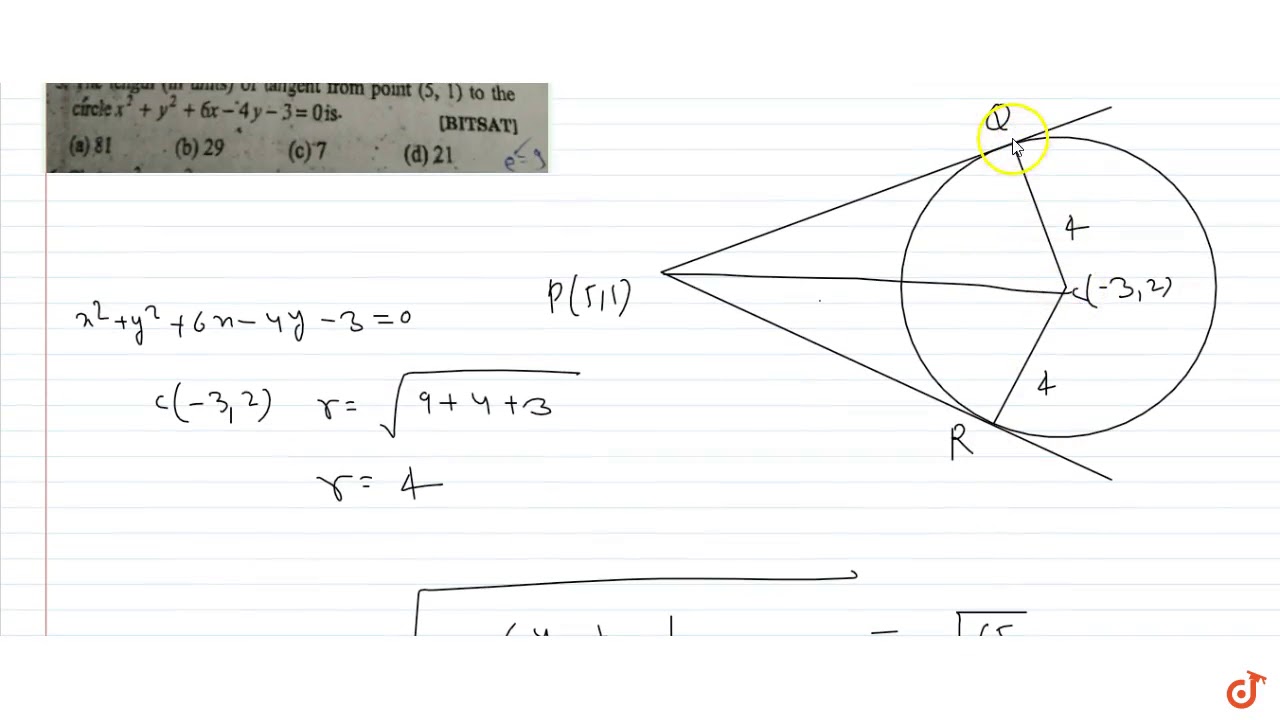 The length (in units) of tangent from point (5, 1) to the
circle x² + y² + 6x - 4y - 3 = 0 is.
[BITSAT]
(a) 81 (b) 29 (c) 7 (d) 21
Q
4
P(5,1)
C(-3,2)
x²+y²+6x-4y-3=0
C(-3,2) r= √9+4+3
4
R
r= 4
= √65